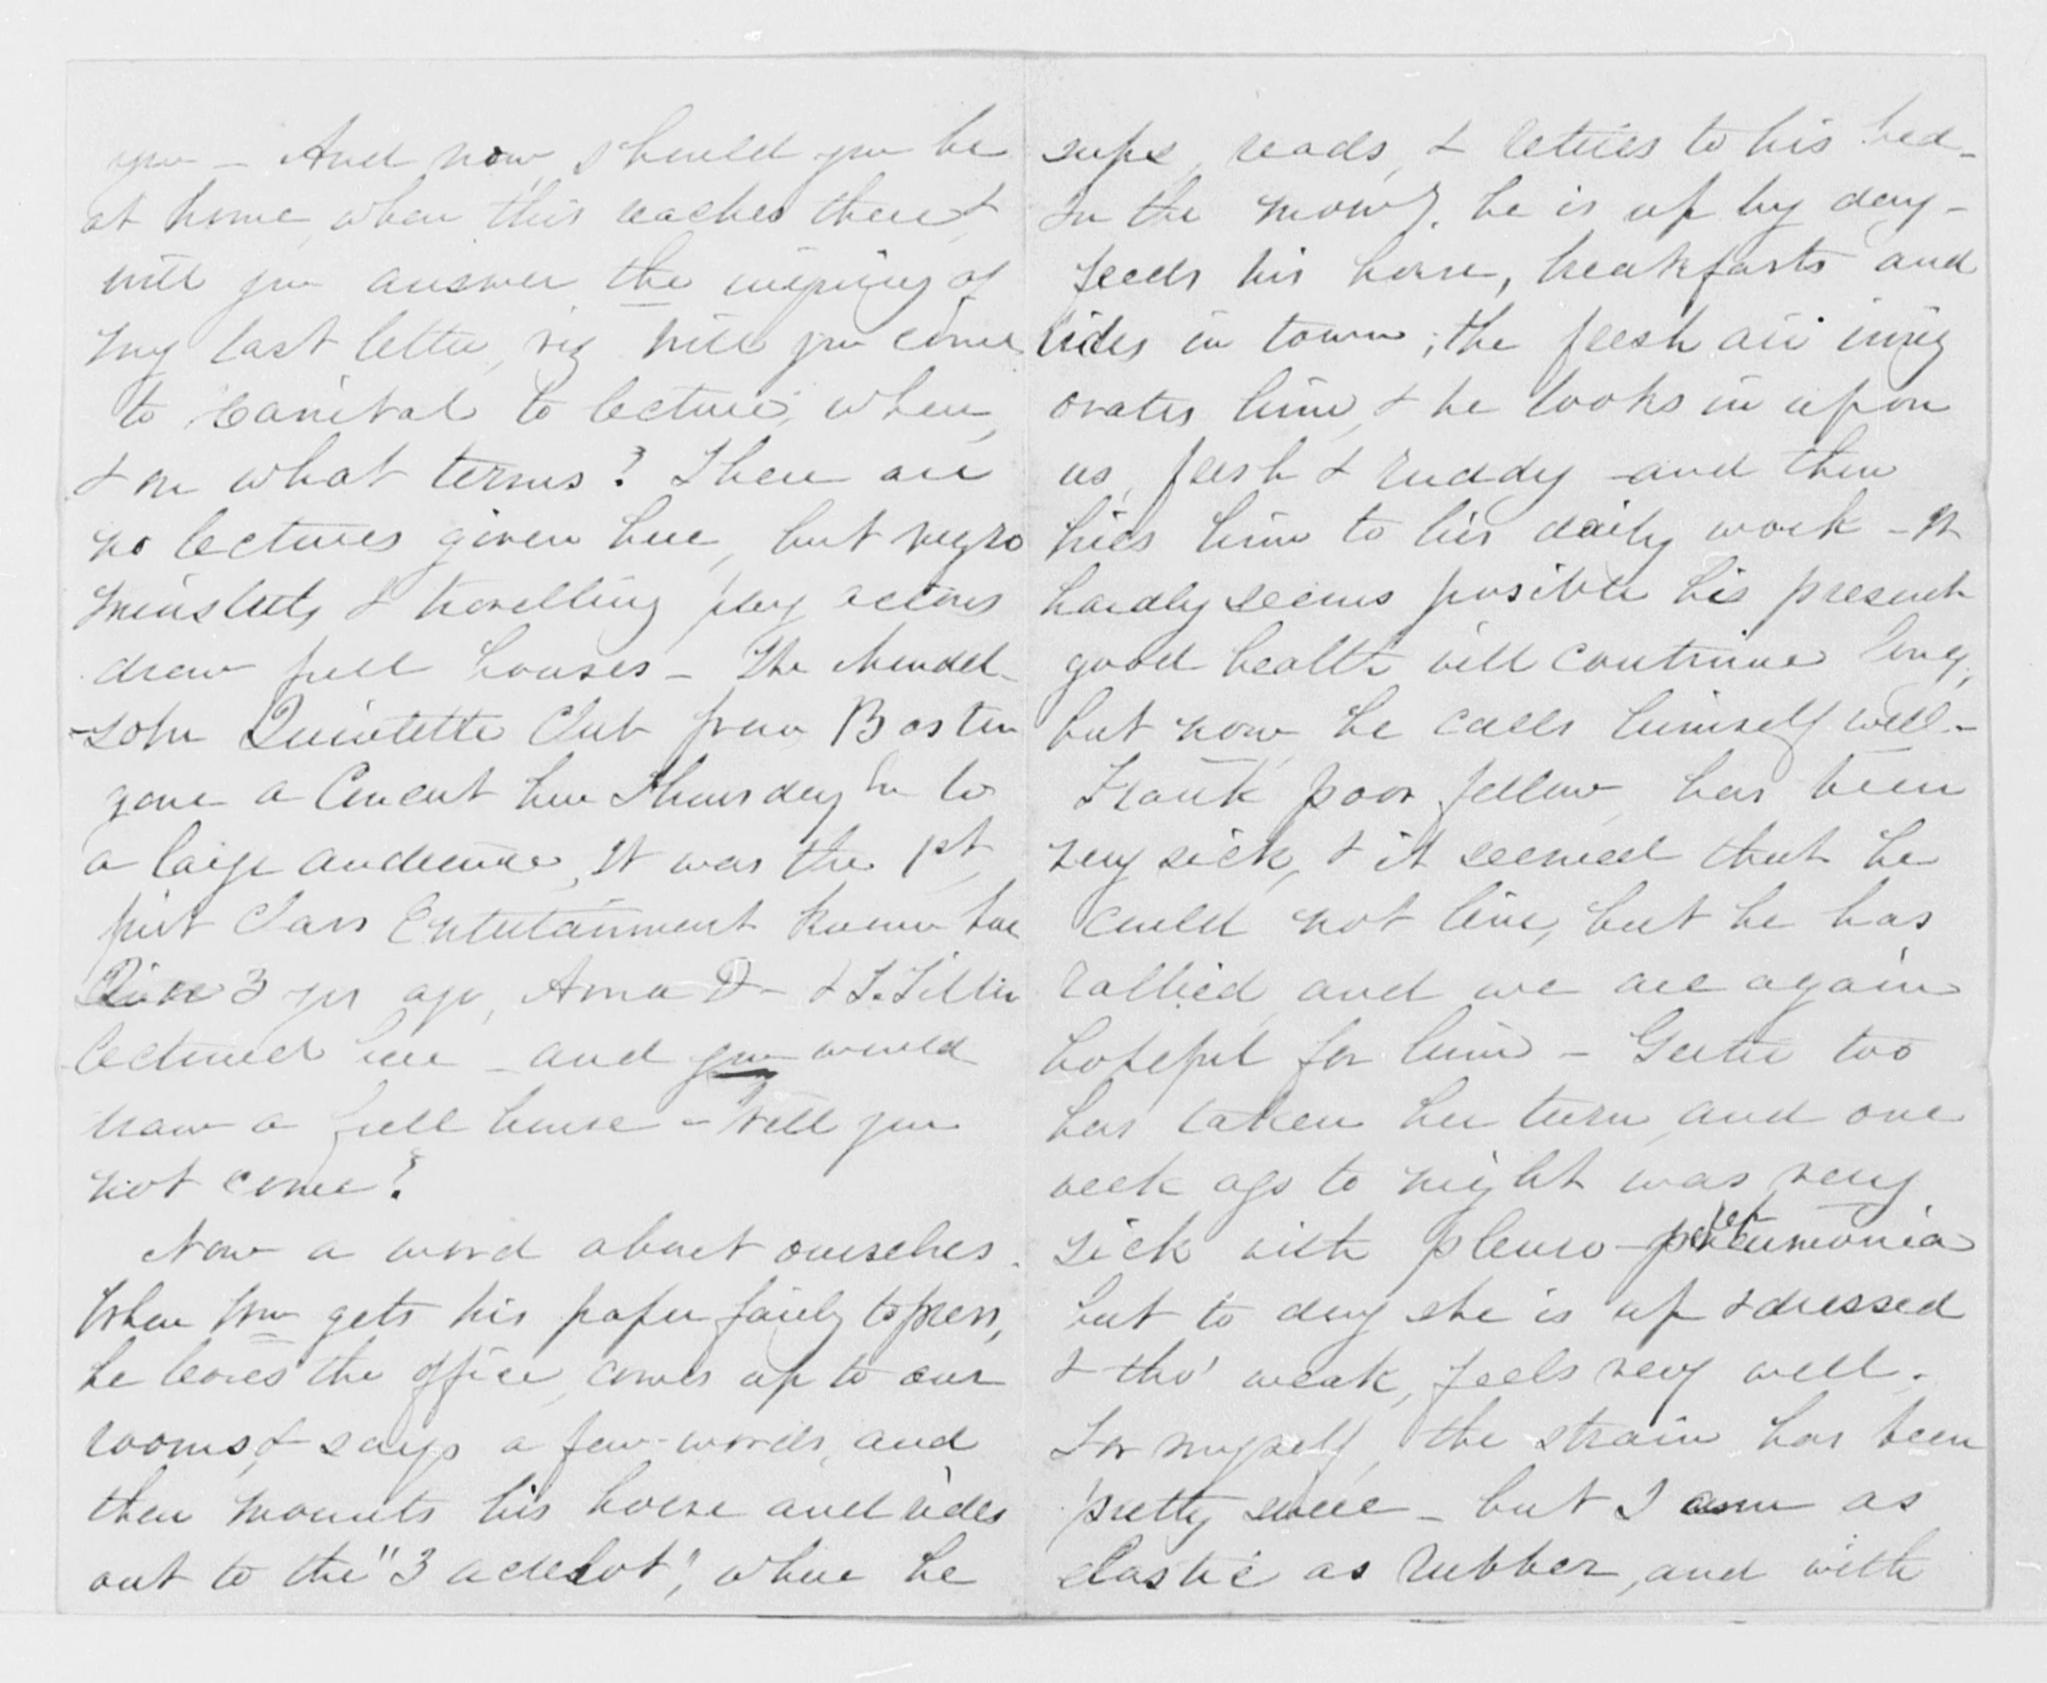 you – And now, should you be
at home, when this reaches there, &
will you answer the inquiry of
my last letter, viz will you come
to Hanibal to lecture, when,
& on what terms? There are
no lectures given here, but negro
minstrels & travelling play actors
draw full houses – The Mendel-
-sohn Quintette Club from Boston
gave a Concert here Thursday to
a large audience, It was the 1st,
first class Entertainment known here
Since 3 yrs ago, Anna D– & T. Tilton
lectured here – and you would
draw a full house – Will you
not come?
Now a word about ourselves.
When Wm gets his paper fairly to press,
he leaves the office, comes up to our
rooms, & says a few words, and
then mounts his horse and rides
out to the "3 acre lot", where he
sups, reads, & retires to his bed –
In the morng. he is up by day –
feeds his horse, breakfasts and
rides in town; the fresh air invig
orates him, & he looks in upon
us, fresh & ruddy – and then
hies him to his daily work – It
hardly seems posible his present
good health will continue long,
but now he calls himself well –
Frank poor fellow, has been
very sick, & it seemed that he
could not live, but he has
rallied, and we are again
hopeful for him – Gertie too
has taken her turn, and one
week ago to night was very
sick with pleuro – pneumonia
but to day she is up & dressed
& tho' weak, feels very well.
For myself, the strain has been
pretty severe – but I am as
elastic as rubber, and with